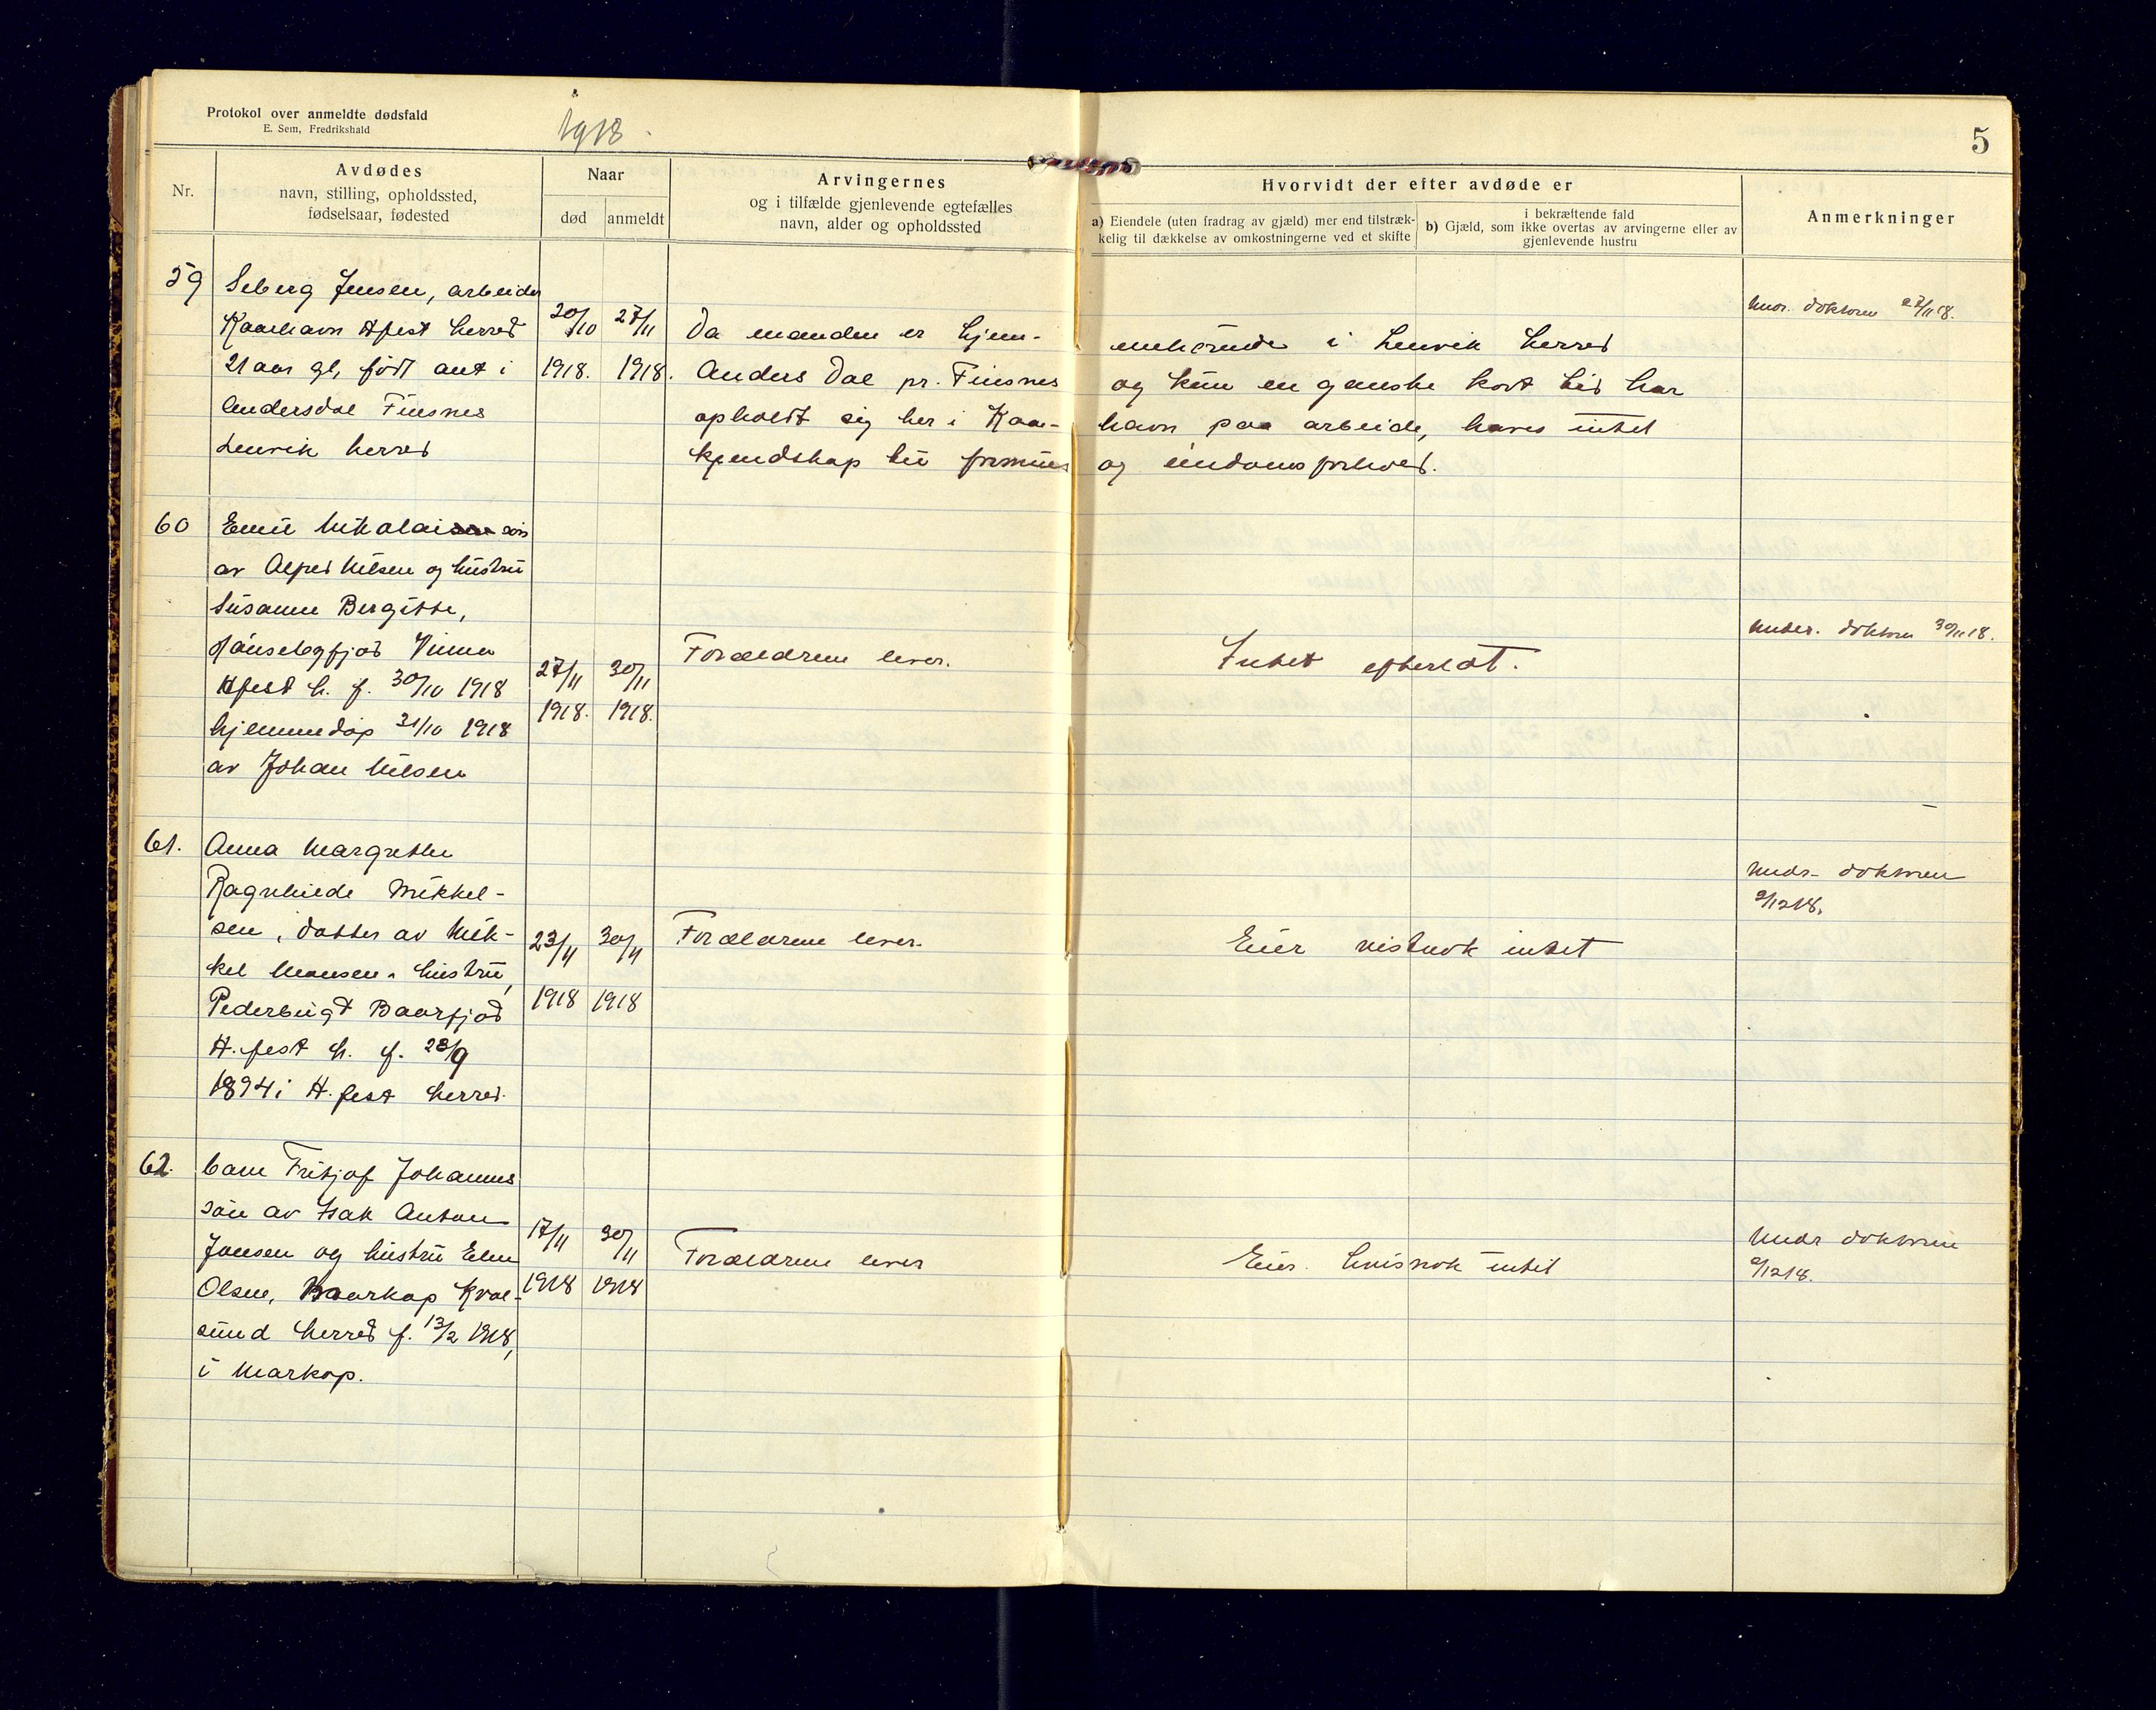 Protokol over anmeldte dødsfald
E. Sem, Fredrikshald
1918.
5
Nr.
Avdødes
navn, stilling, opholdssted,
fødselsaar, fødested
Naar
død
anmeldt
Arvingernes
og i tilfælde gjenlevende egtefælles
navn, alder og opholdssted
Hvorvidt der efter avdøde er
a) Eiendele (uten fradrag av gjæld) mer end tilstræk-
kelig til dækkelse av omkostningerne ved et skifte
i bekræftende fald
b) Gjæld, som ikke overtas av arvingerne eller av
gjenlevende hustru
Anmerkninger
59
Seberg Jensen, arbeider
Kaarhavn Hfest herred
21 aar gl, født ant i
Andersdal Finsnes
Lenvik herred
20/10
1918.
27/11
1918.
Da manden er hjem- mehørende i Lenvik herred
Anders Dal pr. Finsnes og kun en ganske kort tid har
opholdt sig her i Kaa- havn paa arbeide, haves intet
kjendskap til formues og eiendomsforhold.
doktoren 27/11 18.
60
Emil Nikolai søn
av Alfred Nilsen og hustru
Susanne Bergitte,
Vinna
Hfest h. f. 30/10 1918
hjemmedøp 31/10 1918
av Johan Nilsen
27/11
1918.
30/11
1918.
Forældrene lever.
Intet efterladt.
Under. doktoren 30/11 18.
61.
Anna Margrethe
Ragnhilde Mikkel-
sen, datter av Mik-
kel Monsen, hustru,
Pederbugt Baarfjod
H.fest h. f. 28/9
1894 i H.fest herred.
23/11
1918
30/11
1918
Forældrene lever.
Eier vistnok intet
Undr. doktoren
2/12 18.
62.
barn Fritjof Johannes
søn av Isak Anton
Jonsen og hustru Elen
Olsen, Maarkop Kval-
sund herred f. 13/2 1918,
i Markop.
17/11
1918
30/11
1918
Forældrene lever
Eier. hvisnok intet
Undr doktoren
2/12 18.